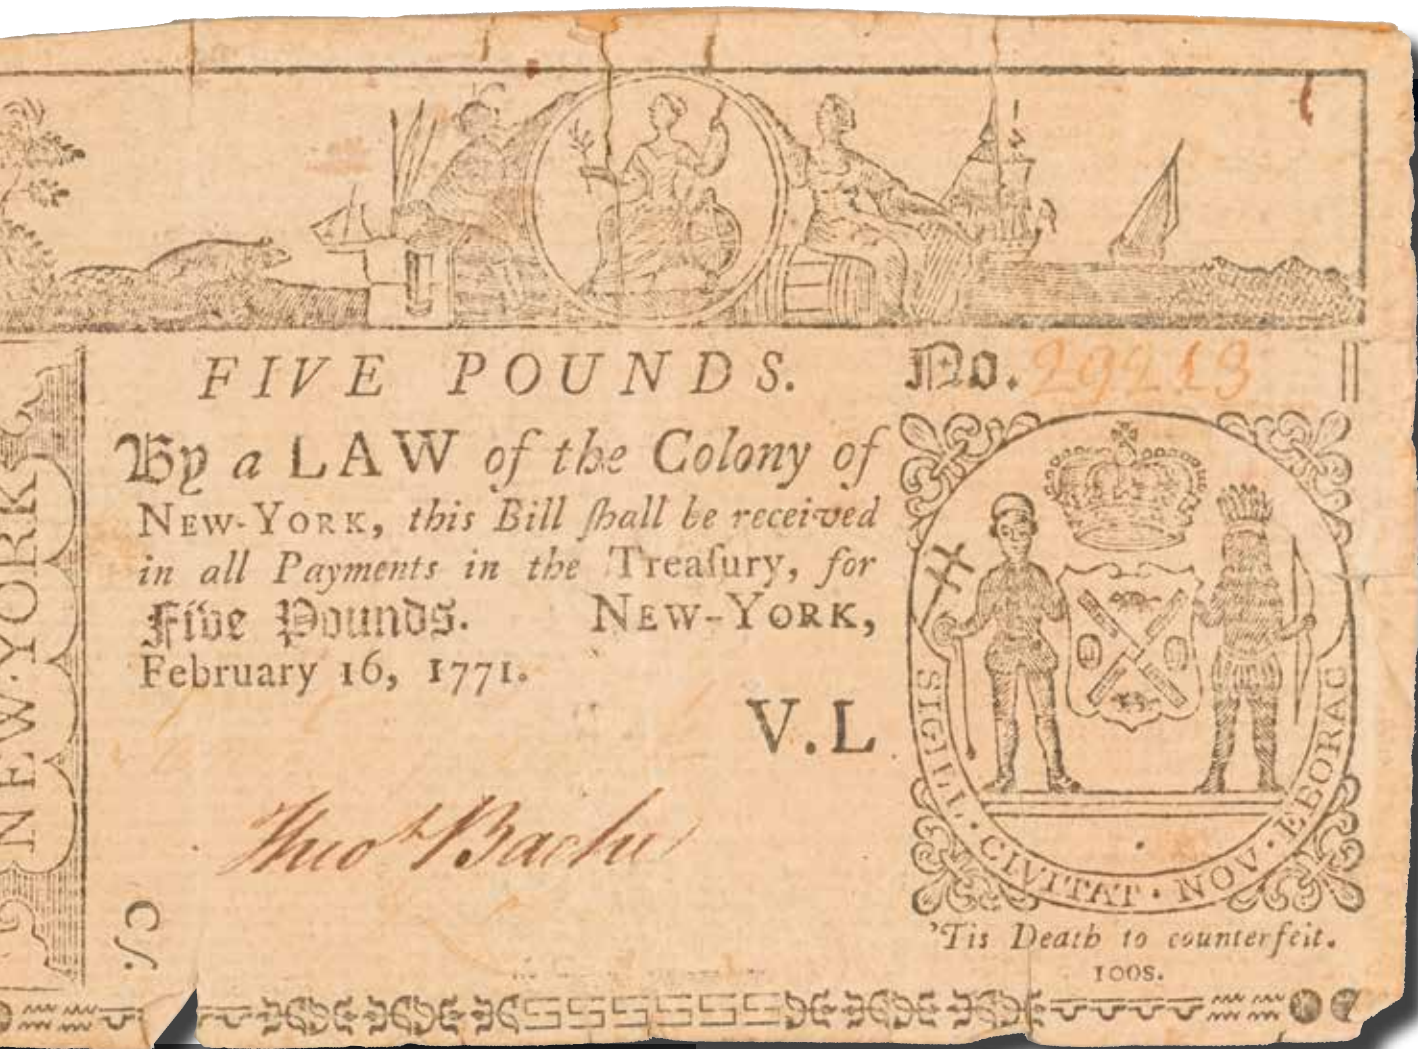 FIVE POUNDS.
No. 29213
By a LAW of the Colony of
NEW-YORK, this Bill ſhall be received
in all Payments in the Treaſury, for
Five Pounds. NEW-YORK,
February 16, 1771.
V.L
Theoᵗ Bache
NEW-YORK
SIGILL·CIVITAT·NOV·EBORAC
'Tis Death to counterfeit.
100s.